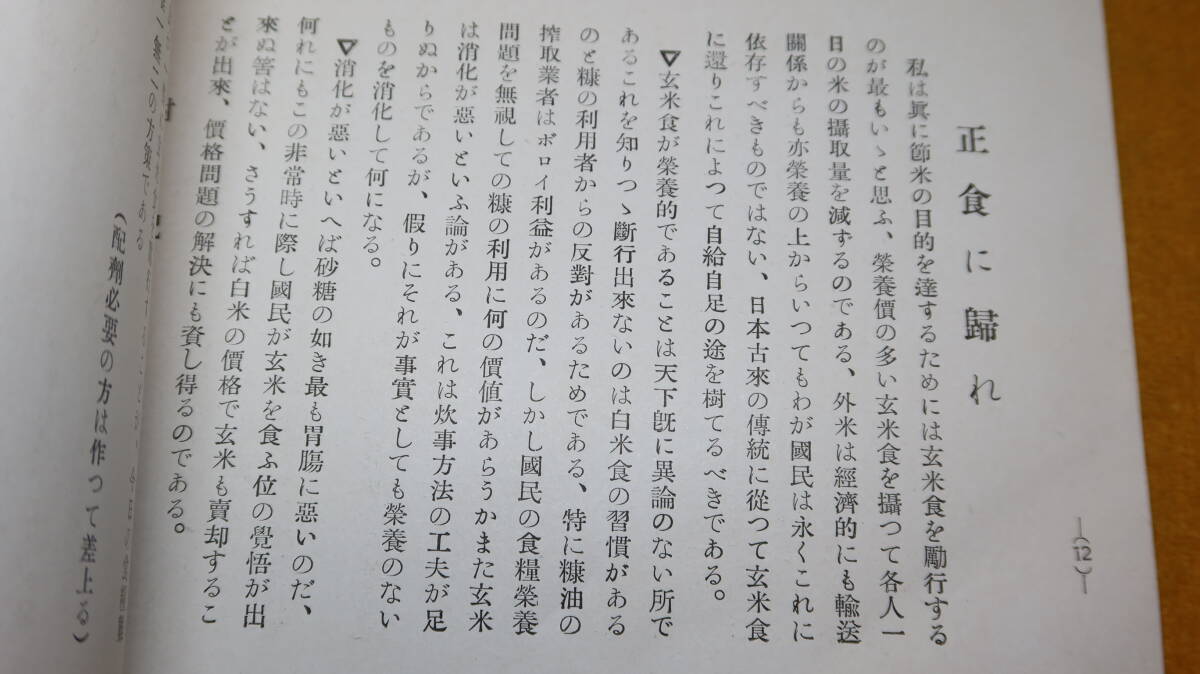 ―(12)―
正食に歸れ
私は眞に節米の目的を達するためには玄米食を勵行する
のが最もいゝと思ふ、榮養價の多い玄米食を攝つて各人一
日の米の攝取量を減するのである、外米は經濟的にも輸送
關係からも亦榮養の上からいつてもわが國民は永くこれに
依存すべきものではない、日本古來の傳統に從つて玄米食
に還りこれによつて自給自足の途を樹てるべきである。
▽玄米食が榮養的であることは天下旣に異論のない所で
あるこれを知りつゝ斷行出來ないのは白米食の習慣がある
のと糠の利用者からの反對があるためである、特に糠油の
搾取業者はボロイ利益があるのだ、しかし國民の食糧榮養
問題を無視しての糠の利用に何の價値があらうかまた玄米
は消化が惡いといふ論がある、これは炊事方法の工夫が足
りぬからであるが、假りにそれが事實としても榮養のない
ものを消化して何になる。
▽消化が惡いといへば砂糖の如き最も胃腸に惡いのだ、
何れにもこの非常時に際し國民が玄米を食ふ位の覺悟が出
來ぬ筈はない、さうすれば白米の價格で玄米も賣却するこ
とが出來、價格問題の解決にも資し得るのである。
無二の方劑である
(配劑必要の方は作つて差上る)